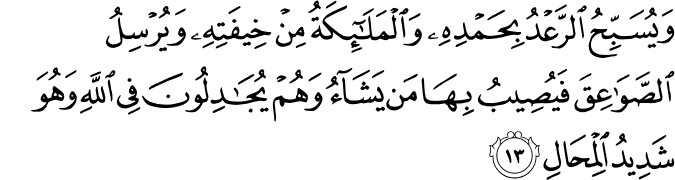 وَيُسَبِّحُ ٱلرَّعْدُ بِحَمْدِهِۦ وَٱلْمَلَـٰٓئِكَةُ مِنْ خِيفَتِهِۦ وَيُرْسِلُ
ٱلصَّوَٰعِقَ فَيُصِيبُ بِهَا مَن يَشَآءُ وَهُمْ يُجَـٰدِلُونَ فِى ٱللَّهِ وَهُوَ
شَدِيدُ ٱلْمِحَالِ ١٣